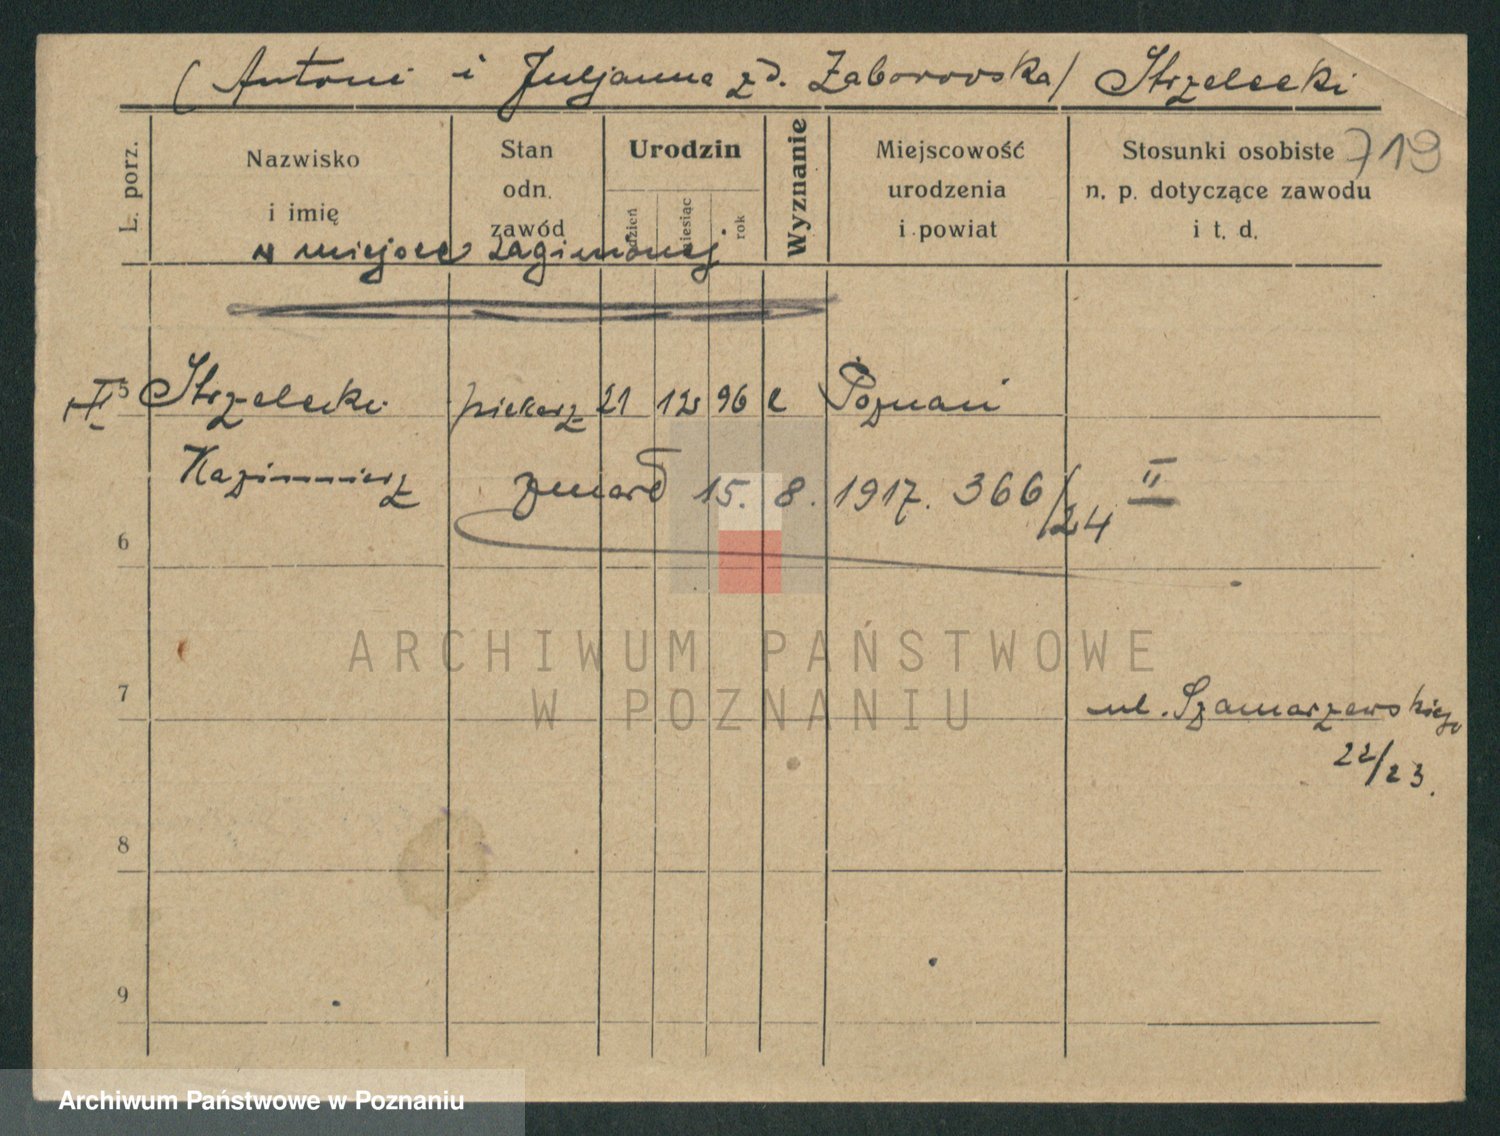 (Antoni i Juljanna zd. Zaborowska) Strzelecki
719
L. porz.
Nazwisko
i imię
Stan
odn.
zawód
Urodzin
dzień
miesiąc
rok
Wyznanie
Miejscowość
urodzenia
i powiat
Stosunki osobiste
n. p. dotyczące zawodu
i t. d.
w miejsce zaginionej
5 Strzelecki piekarz 21 12 96 c Poznań
Kazimierz zmarł 15. 8. 1917. 366/24 II
6
ARCHIWUM PAŃSTWOWE
W POZNANIU
7
ul. Szamarzewskiego
22/23.
8
9
Archiwum Państwowe w Poznaniu